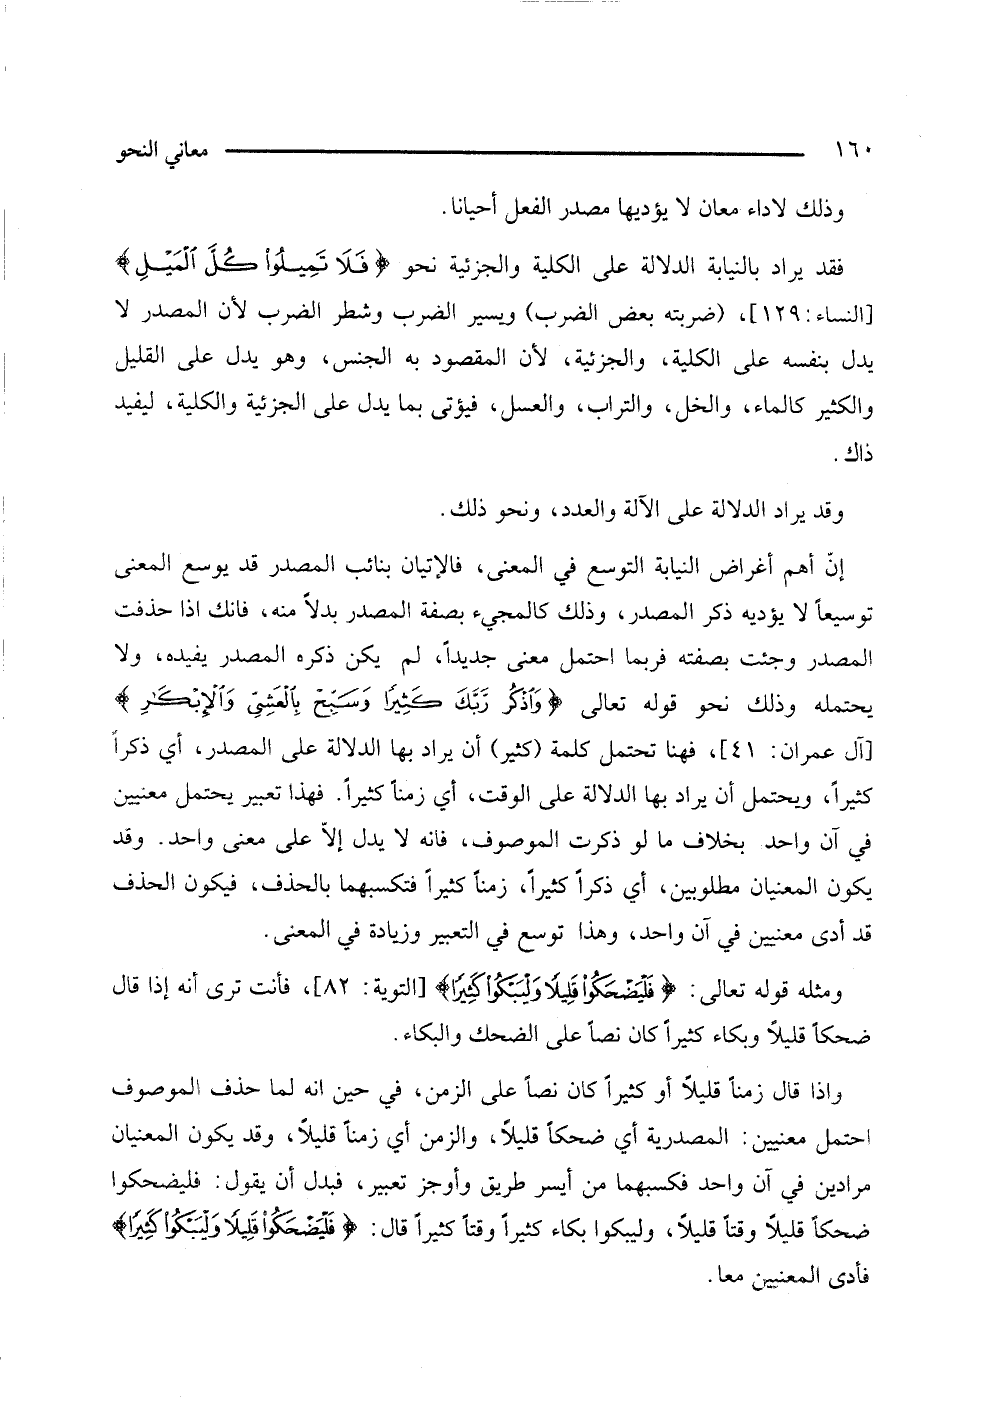 ١٦٠ معاني النحو
وذلك لاداء معان لا يؤديها مصدر الفعل أحيانا.
فقد يراد بالنيابة الدلالة على الكلية والجزئية نحو ﴿فَلَا تَمِيلُوا۟ كُلَّ ٱلْمَيْلِ﴾
[النساء: ١٢٩]، (ضربته بعض الضرب) ويسير الضرب وشطر الضرب لأن المصدر لا
يدل بنفسه على الكلية، والجزئية، لأن المقصود به الجنس، وهو يدل على القليل
والكثير كالماء، والخل، والتراب، والعسل، فيؤتى بما يدل على الجزئية والكلية، ليفيد
ذاك.
وقد يراد الدلالة على الآلة والعدد، ونحو ذلك.
إنّ أهم أغراض النيابة التوسع في المعنى، فالإتيان بنائب المصدر قد يوسع المعنى
توسيعاً لا يؤديه ذكر المصدر، وذلك كالمجيء بصفة المصدر بدلاً منه، فانك اذا حذفت
المصدر وجئت بصفته فربما احتمل معنى جديداً، لم يكن ذكره المصدر يفيده، ولا
يحتمله وذلك نحو قوله تعالى ﴿وَٱذْكُر رَّبَّكَ كَثِيرًا وَسَبِّحْ بِٱلْعَشِىِّ وَٱلْإِبْكَٰرِ﴾
[آل عمران: ٤١]، فهنا تحتمل كلمة (كثير) أن يراد بها الدلالة على المصدر، أي ذكراً
كثيراً، ويحتمل أن يراد بها الدلالة على الوقت، أي زمناً كثيراً. فهذا تعبير يحتمل معنيين
في آن واحد بخلاف ما لو ذكرت الموصوف، فانه لا يدل إلاّ على معنى واحد. وقد
يكون المعنيان مطلوبين، أي ذكراً كثيراً، زمناً كثيراً فتكسبهما بالحذف، فيكون الحذف
قد أدى معنيين في آن واحد، وهذا توسع في التعبير وزيادة في المعنى.
ومثله قوله تعالى: ﴿فَلْيَضْحَكُوا۟ قَلِيلًا وَلْيَبْكُوا۟ كَثِيرًا﴾ [التوبة: ٨٢]، فأنت ترى أنه إذا قال
ضحكاً قليلاً وبكاء كثيراً كان نصاً على الضحك والبكاء.
واذا قال زمناً قليلاً أو كثيراً كان نصاً على الزمن، في حين انه لما حذف الموصوف
احتمل معنيين: المصدرية أي ضحكاً قليلاً، والزمن أي زمناً قليلاً، وقد يكون المعنيان
مرادين في آن واحد فكسبهما من أيسر طريق وأوجز تعبير، فبدل أن يقول: فليضحكوا
ضحكاً قليلاً وقتاً قليلاً، وليبكوا بكاء كثيراً وقتاً كثيراً قال: ﴿فَلْيَضْحَكُوا۟ قَلِيلًا وَلْيَبْكُوا۟ كَثِيرًا﴾
فأدى المعنيين معا.